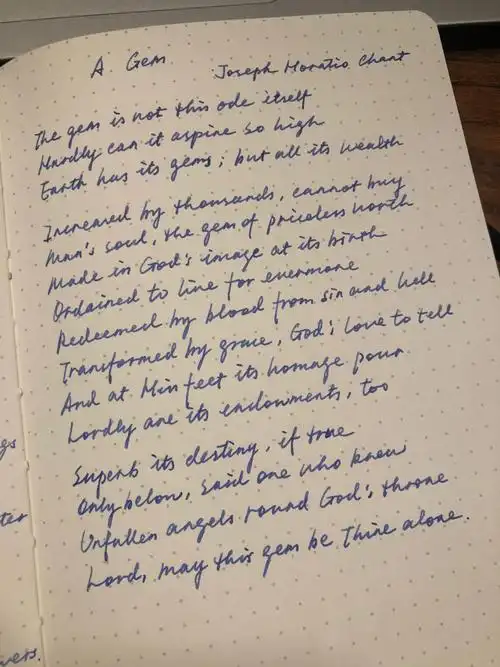 A Gem
Joseph Horatio Chant
The gem is not this ode itself
Hardly can it aspire so high
Earth has its gems; but all its wealth
Increased by thousands, cannot buy
Man's soul, the gem of priceless worth
Made in God's image at its birth
Ordained to live for evermore
Redeemed by blood from sin and hell
Transformed by grace, God's love to tell
And at His feet its homage pour
Lordly are its endowments, too
Superb its destiny, if true
Only below, said one who knew
Unfallen angels round God's throne
Lord, may this gem be Thine alone.
gs
ter
wers.